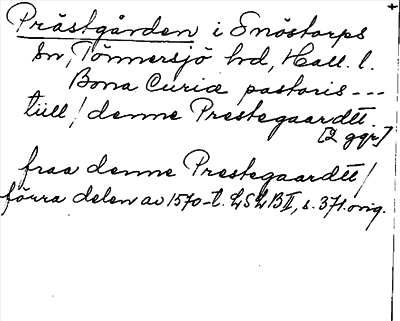 Prästgården i Snöstorps
sn, Tönnersjö hrd, Hall. l.
Bona Curiæ pastoris ---
tiill / denne Prestegaardtt.
[2 ggr]
fraa denne Prestegaardtt /
förra delen av 1570-t. LSLB II, s. 371. orig.